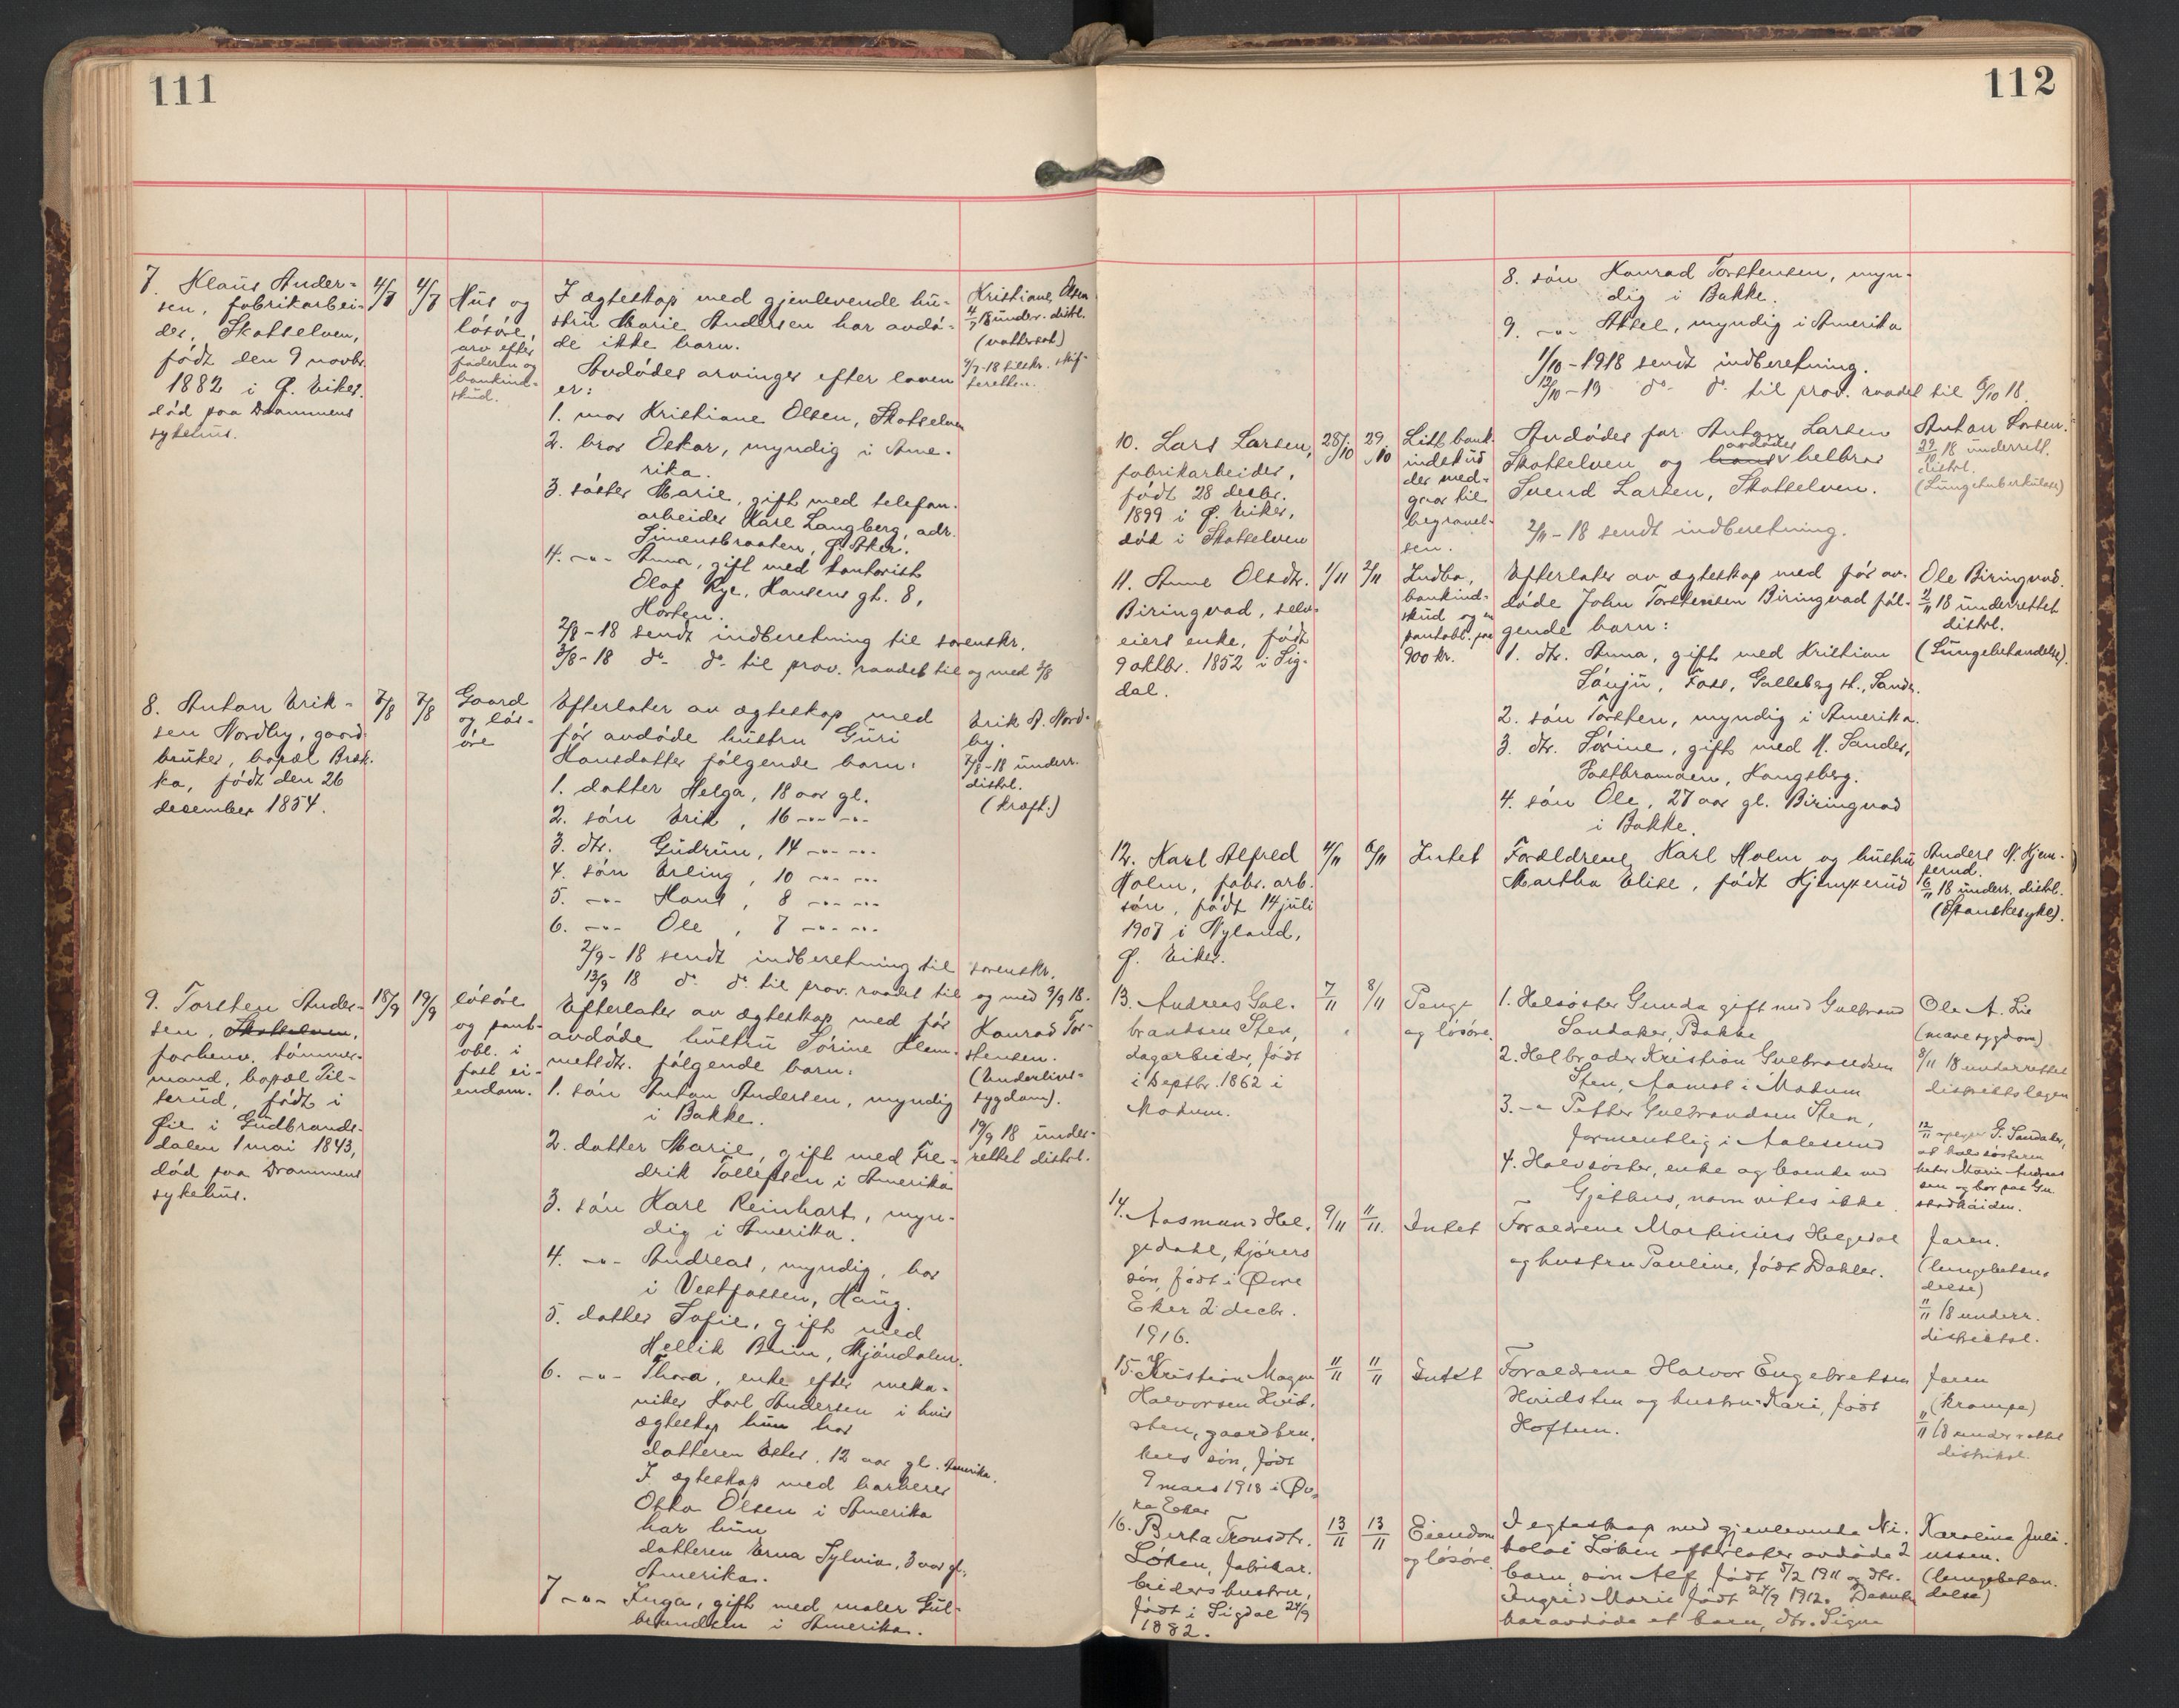 111
7. Klaus Ander-
sen, fabrikarbei-
der, Skotselven,
født den 9 novbr.
1882 i Ø. Eiker.
død paa Drammens
sykehus.
4/7
4/7
Hus og
løsøre,
arv efter
faderen og
bankind-
skud.
I ægteskap med gjenlevende hu-
stru Marie Andersen har avdø-
de ikke barn.
Avdødes arvinger efter loven
er:
1. mor Kristiane Olsen, Skotselven
2. bror Oskar, myndig i Ame-
rika.
3. søster Marie, gift med telefon-
arbeider Karl Langberg, adr.
Simensbraaten, Ø. Aker.
4. -"- Anna, gift med kontorist
Olaf Rye, Hansens gt. 8,
Horten.
2/8-18 sendt indberetning til sorenskr.
3/8-18 do- do- til prov. raadet til og med 3/8
Kristiane Olsen
4/7 18 under. distl.
(vattersot)
4/7-18 tilskr. skif-
teretten.
8. Anton Erik-
sen Nordby, gaard-
bruker, bopæl Bak-
ka, født den 26
desember 1854.
7/8
7/8
Gaard
og løs-
øre
Efterlater av ægteskap med
før avdøde hustru Guri
Hansdatter følgende barn:
1. datter Helga, 18 aar gl.
2. søn Erik, 16 -"- -"-
3. dtr. Gudrun, 14 -"- -"-
4. søn Erling, 10 -"- -"-
5. -"- Hans, 8 -"- -"-
6. -"- Ole, 7 -"- -"-
2/9-18 sendt indberetning til sorenskr.
13/9 18 do- do- til prov. raadet til og med 9/9 18.
Erik A. Nord-
by.
7/8-18 underr.
distl.
(kræft.)
9. Torsten Ander-
sen, Skotselven,
forhenv. tømmer-
mand, bopæl Til-
terud, født i
Øie i Gudbrands-
dalen 1 mai 1843,
død paa Drammens
sykehus.
18/9
19/9
løsøre
og pant-
obl. i
fast ei-
endom.
Efterlater av ægteskap med før
avdøde hustru Sørine Klem-
metsdtr. følgende barn:
1. søn Anton Andersen, myndig
i Bakke.
2. datter Marie, gift med Fre-
drik Tollefsen i Amerika
3. søn Karl Reinhart, myn-
dig i Amerika.
4. -"- Andreas, myndig, bor
i Vestfossen, Haug.
5. datter Sofie, gift med
Hellik Bruun, Mjøndalen.
6. -"- Thora, enke efter meka-
niker Karl Andersen i hvis
ægteskap hun har
datteren Ester, 12 aar gl. Amerika.
I ægteskap med barberer
Otto Olsen i Amerika
har hun
datteren Erna Sylvia, 3 aar gl.
Amerika.
7 -"- Inga, gift med maler Gul-
brandsen i Amerika.
Konrad Tor-
stensen.
(Underlivs-
sygdom).
19/9 18 under-
rettet distl.
112
8. søn Konrad Torstensen, myn-
dig i Bakke.
9. -"- Aksel, myndig i Amerika
1/10-1918 sendt indberetning.
12/10-18 do- do- til prov. raadet til 6/10 18.
10. Lars Larsen,
fabrikarbeider,
født 28 desbr.
1899 i Ø. Eiker,
død i Skotselven
28/10
29/10
Litt bank-
indskud
der med-
gaar til
begravel-
sen.
Avdødes far Anton Larsen
Skotselven og hans avdødes helbror
Svend Larsen, Skotselven.
2/11-18 sendt indberetning.
Anton Larsen.
29/10 18 underrett.
distl.
(Lungetuberkulose)
11. Anne Olsdtr.
Biringvad, selv-
eiers enke, født
9 oktbr. 1852 i Sig-
dal.
1/11
2/11
Indbo,
bankind-
skud og en
pantobl. paa
900 kr.
Efterlater av ægteskap med før av-
døde John Torstensen Biringvad føl-
gende barn:
1. dtr. Anna, gift med Kristian
Sønju, Foss, Galleberg st., Sande.
2. søn Torsten, myndig i Amerika.
3. dtr. Sørine, gift med M. Sander,
Postbramoen, Kongsberg.
4. søn Ole, 27 aar gl. Biringvad
i Bakke.
Ole Biringvad.
2/11 18 underrettet
distl.
(Lungebetændelse).
12. Karl Alfred
Holm, fabr. arb.
søn, født 14 juli
1907 i Nyland,
Ø. Eiker.
4/11
6/11
Intet
Forældrene, Karl Holm og hustru
Martha Elise, født Hjemperud
Anders H. Hjem-
perud.
6/11 18 underr. distl.
(Spanskesyke).
13. Andreas Gul-
brandsen Sten,
dagarbeider, født
i Septbr. 1862 i
Modum.
7/11
8/11
Penge
og løsøre.
1. Helsøster Gunda gift med Gulbrand
Sandaker, Bakke
2. Helbroder Kristian Gulbrandsen
Sten, Aamot i Modum
3. -"- Petter Gulbrandsen Sten,
formentlig i Aalesund
4. Halvsøster, enke og boende ved
Gjethus, navn vites ikke.
Ole A. Lie
(mavesygdom)
8/11 18 underrettet
distriktslegen
12/11 opgir G. Sandaker,
at halvsøsteren
heter Maria Andrea-
sen og bor paa Gu-
stadhaiden.
14. Aasmund Hel-
gedahl, kjørers
søn, født i Øvre
Eker 2 decbr.
1916.
9/11
11/11.
Intet
Foraeldrene Martinius Helgedal
og hustru Pauline, født Dahler.
Faren.
(lungebetæn-
delse)
11/11 18 underr.
distriktsl.
15. Kristian Magnus
Halvorsen Hvid-
sten, gaardbru-
kers søn, født
9 mars 1918 i Øv-
re Eker
11/11
11/11
Intet
Foraeldrene Halvor Engebretsen
Hvidsten og hustru Kari, født
Hoftun.
Faren
(Krampe)
11/11 18 underrettet
distriktsl.
16. Berta Tronsdtr.
Løken, fabrikar-
beiders hustru,
født i Sigdal 24/9
1882.
13/11
13/11
Eiendom
og løsøre
I egteskap med gjenlevende Ni-
kolai Løken efterlater avdøde 2
barn, søn Alf, født 5/2 1911 og dtr.
Ingrid Marie født 24/9 1912. Desuten
har avdøde et barn, dtr. Signe
Karoline Juli-
ussen.
(lungebetæn-
delse)